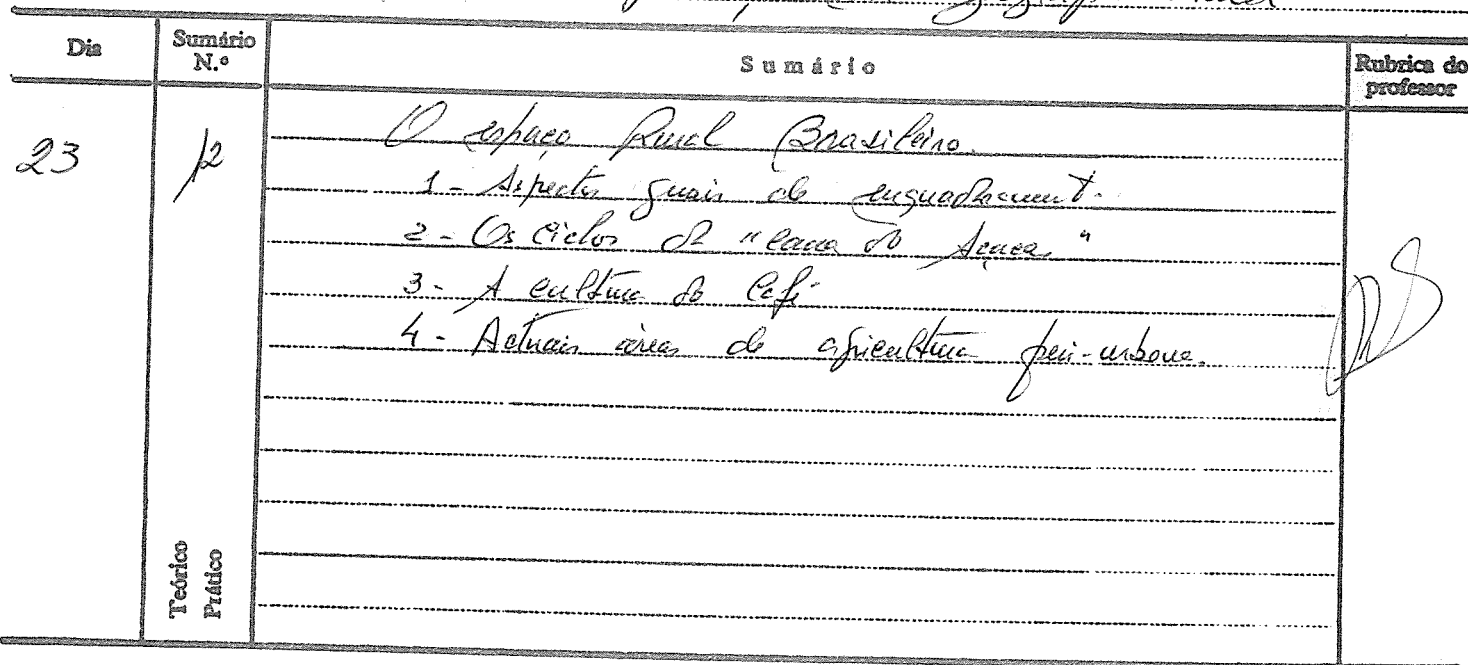 Dia
Sumário N.º
Sumário
Rubrica do professor
23
12
O espaço Rural Brasileiro.
1 - Aspectos gerais de enquadrament.
2 - Os Ciclos da "Cana do Açucar"
3 - A cultura do Café
4 - Actuais áreas de agricultura peri-urbana.
Teórico
Prático